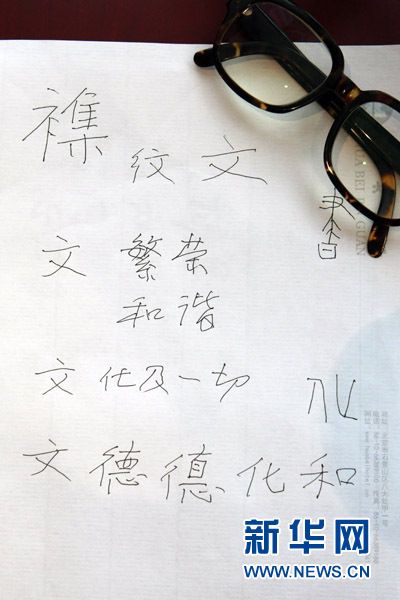 襍
纹 文
文 繁荣
和谐
文 化及一切
文 德 德 化 和
BEI GUAN
新华网
WWW.NEWS.CN